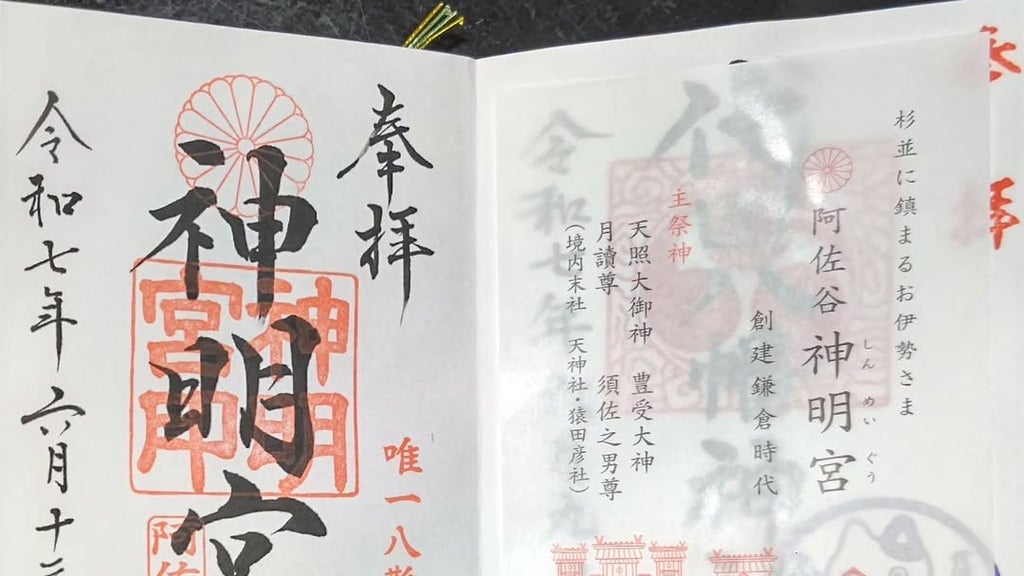 杉並に鎮まるお伊勢さま
阿佐谷 神明宮
しんめいぐう
創建鎌倉時代
主祭神
天照大御神 豊受大神
月讀尊 須佐之男尊
(境内末社 天神社・猿田彦社)
令和七年
奉拝
唯一八
神明宮
神明宮印
阿佐
令和七年六月十二